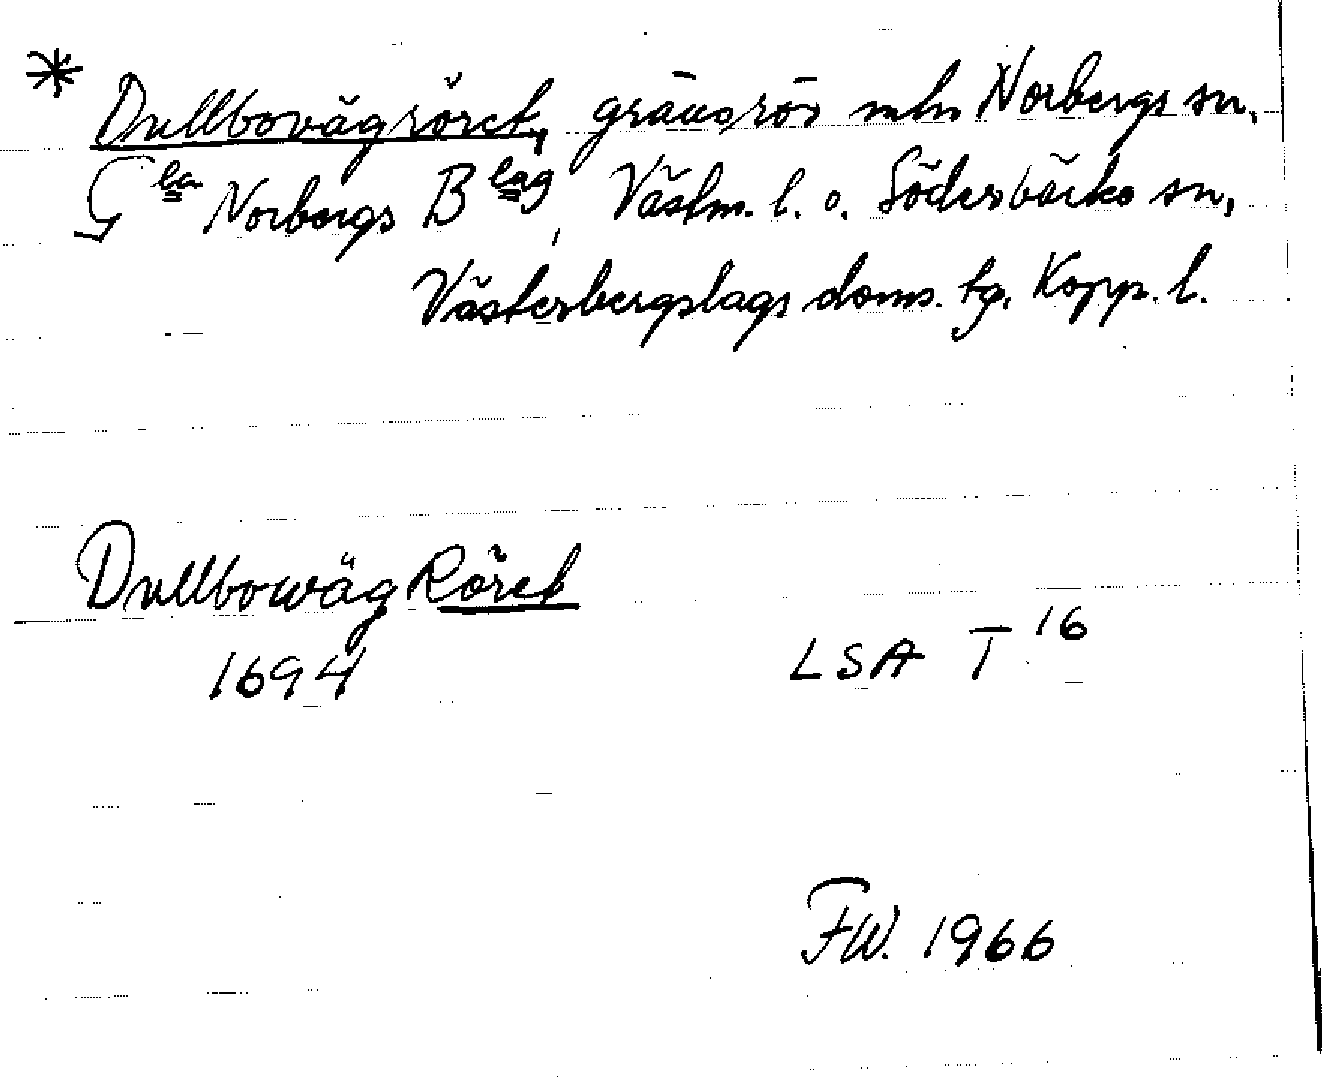 * Dullbovägröret, gränsrör mln Norbergs sn,
Gla Norbergs Blag, Västm. l. o. Söderbärke sn,
Västerbergslags doms. tg. Kopp. l.
Dullbowäg Röret
1694 LSA T 16
FW. 1966